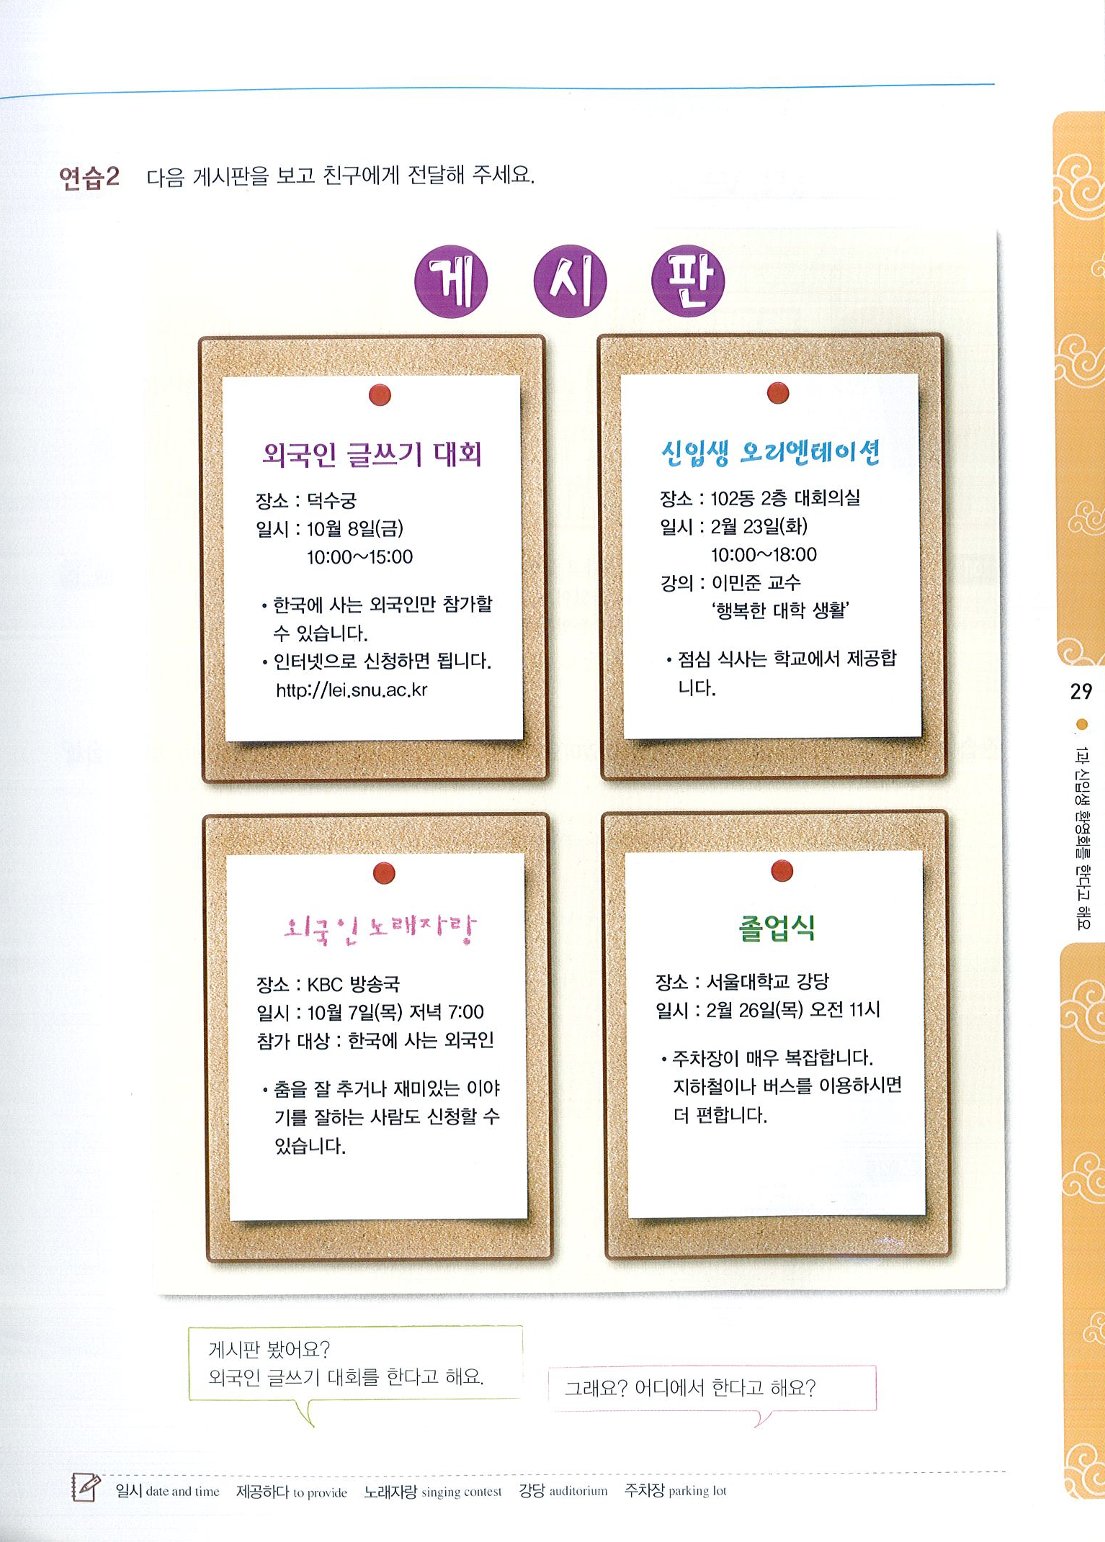 연습2 다음 게시판을 보고 친구에게 전달해 주세요.
게 시 판
외국인 글쓰기 대회
장소 : 덕수궁
일시 : 10월 8일(금)
10:00~15:00
• 한국에 사는 외국인만 참가할
수 있습니다.
• 인터넷으로 신청하면 됩니다.
http://lei.snu.ac.kr
신입생 오리엔테이션
장소 : 102동 2층 대회의실
일시 : 2월 23일(화)
10:00~18:00
강의 : 이민준 교수
‘행복한 대학 생활’
• 점심 식사는 학교에서 제공합
니다.
외국인 노래자랑
장소 : KBC 방송국
일시 : 10월 7일(목) 저녁 7:00
참가 대상 : 한국에 사는 외국인
• 춤을 잘 추거나 재미있는 이야
기를 잘하는 사람도 신청할 수
있습니다.
졸업식
장소 : 서울대학교 강당
일시 : 2월 26일(목) 오전 11시
• 주차장이 매우 복잡합니다.
지하철이나 버스를 이용하시면
더 편합니다.
게시판 봤어요?
외국인 글쓰기 대회를 한다고 해요.
그래요? 어디에서 한다고 해요?
일시 date and time 제공하다 to provide 노래자랑 singing contest 강당 auditorium 주차장 parking lot
29
1과 신입생 환영회를 한다고 해요